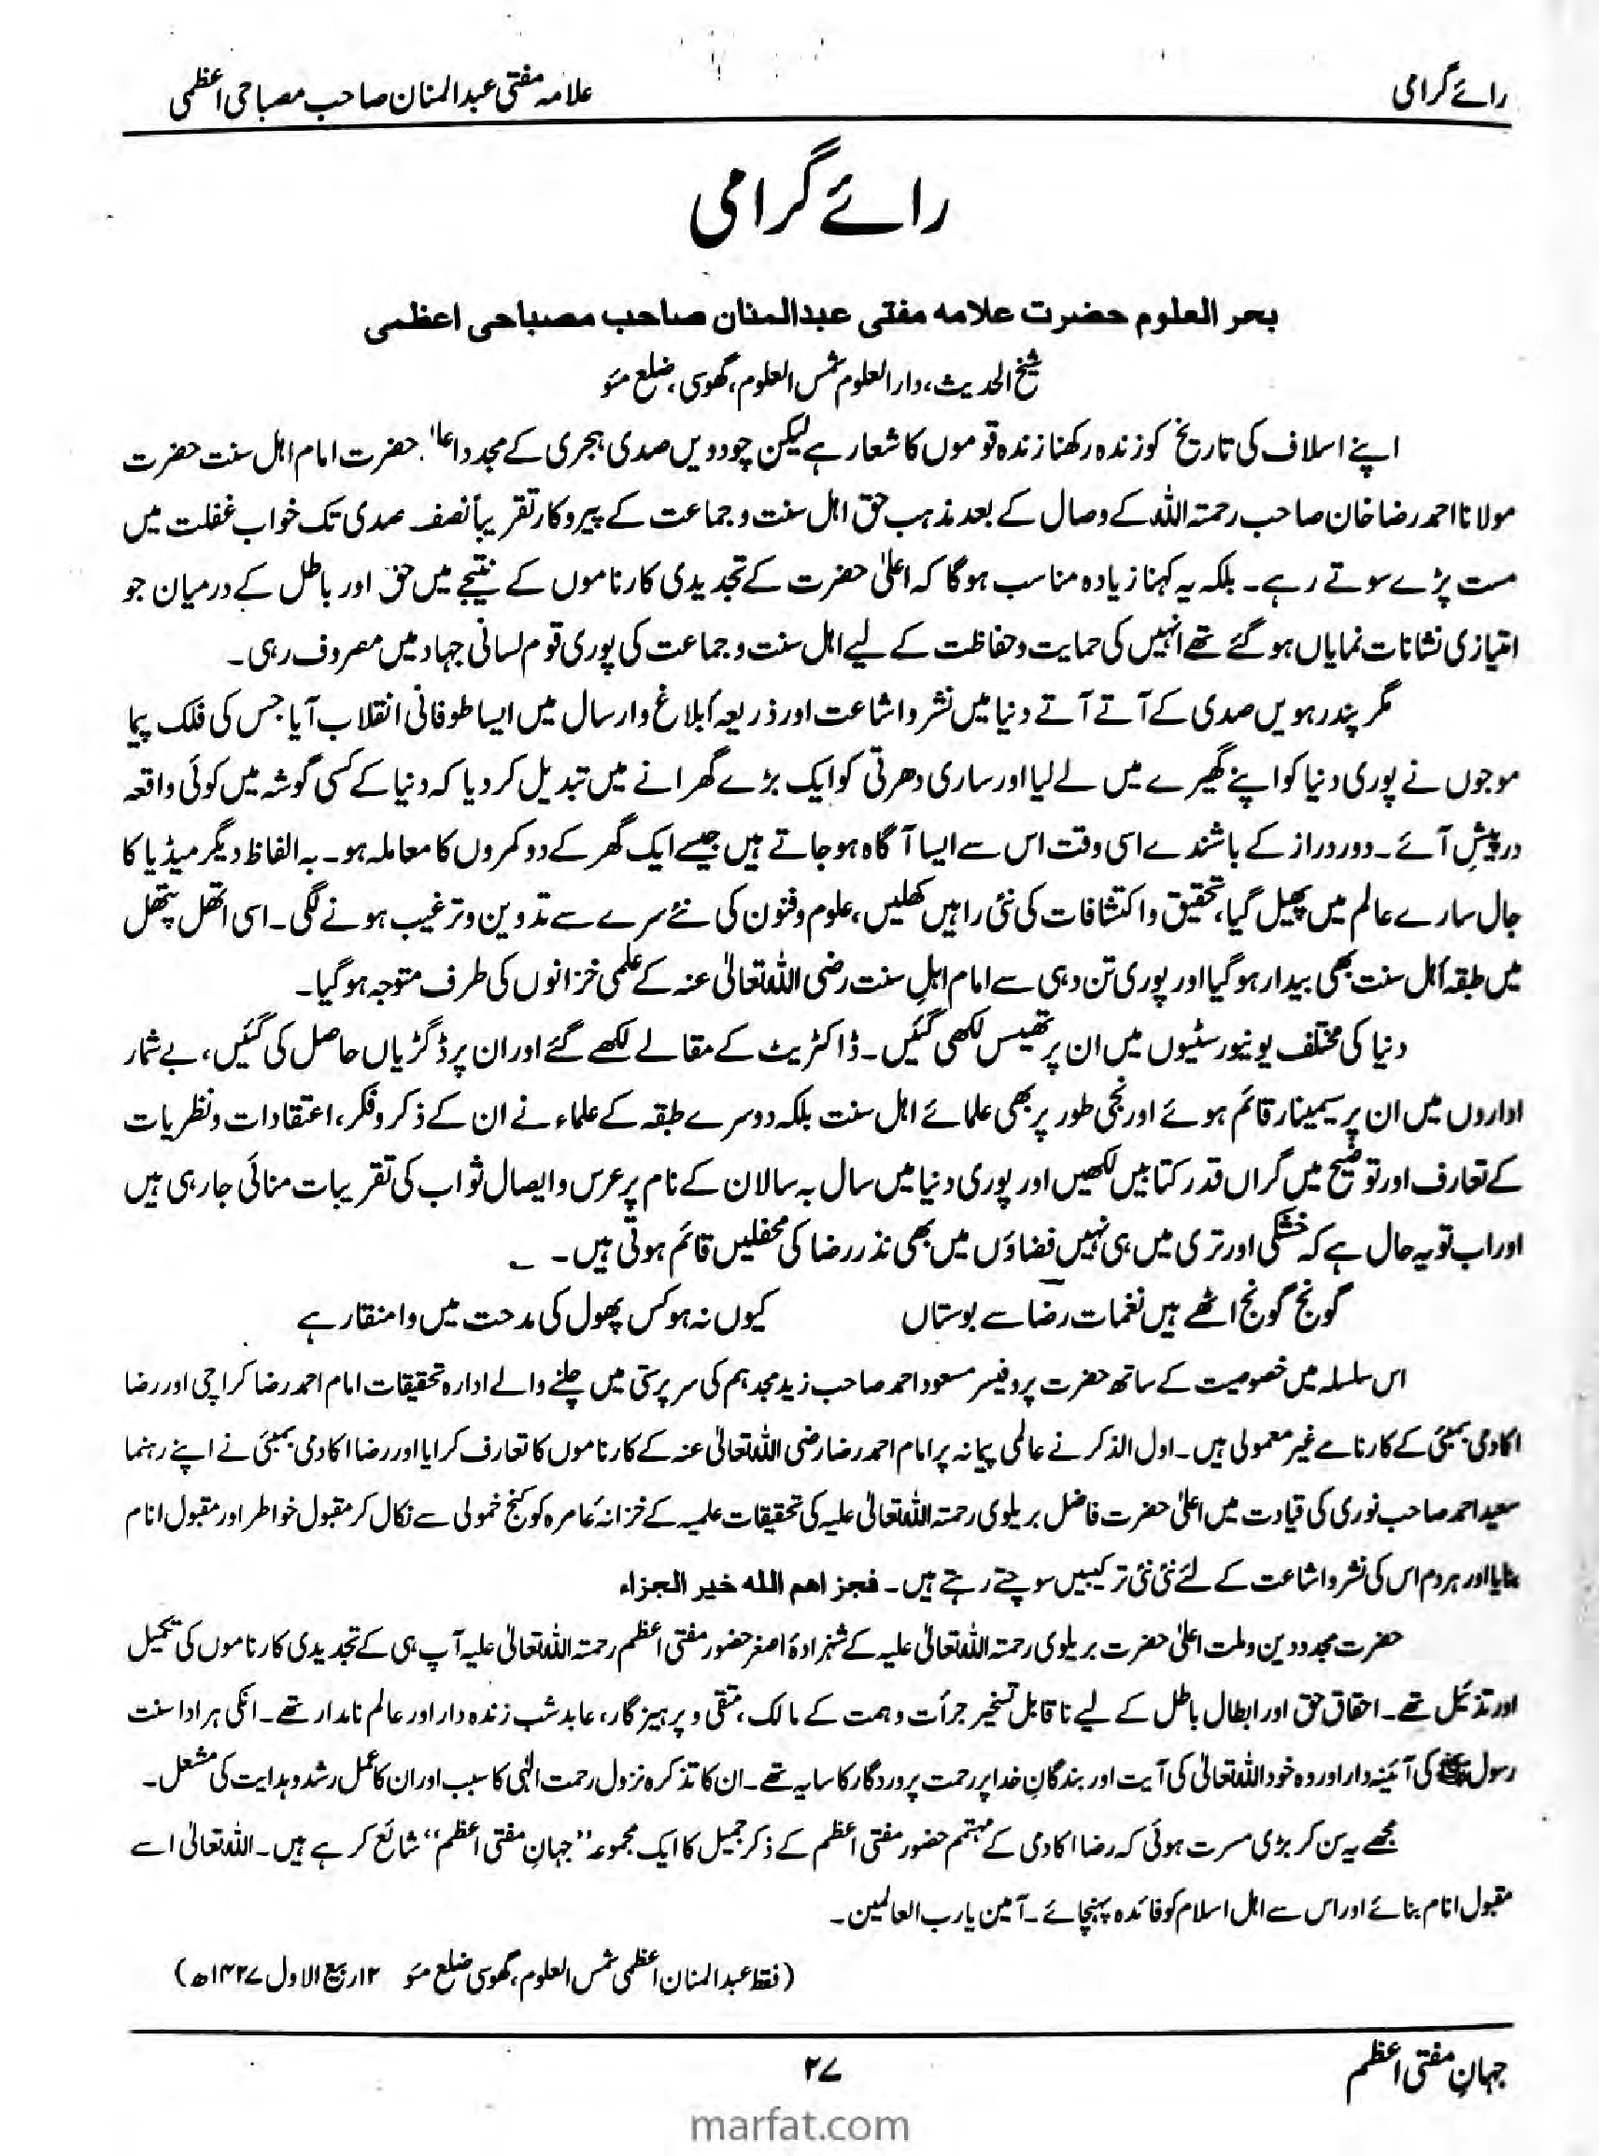 رائے گرامی
علامہ مفتی عبدالمنان صاحب مصباحی اعظمی
رائے گرامی
بحر العلوم حضرت علامہ مفتی عبدالمنان صاحب مصباحی اعظمی
شیخ الحدیث، دارالعلوم شمس العلوم، گھوسی، ضلع مئو
اپنے اسلاف کی تاریخ کو زندہ رکھنا زندہ قوموں کا شعار ہے لیکن چودویں صدی ہجری کے مجدد حضرت امام اہل سنت حضرت
مولانا احمد رضا خان صاحب رحمتہ اللہ کے وصال کے بعد مذہب حق اہل سنت و جماعت کے پیروکار تقریباً نصف صدی تک خواب غفلت میں
مست پڑے سوتے رہے۔ بلکہ یہ کہنا زیادہ مناسب ہوگا کہ اعلیٰ حضرت کے تجدیدی کارناموں کے نتیجے میں حق اور باطل کے درمیان جو
امتیازی نشانات نمایاں ہو گئے تھے انہیں کی حمایت و حفاظت کے لیے اہل سنت و جماعت کی پوری قوم لسانی جہاد میں مصروف رہی۔
مگر پندرہویں صدی کے آتے آتے دنیا میں نشر و اشاعت اور ذریعہ ابلاغ و ارسال میں ایسا طوفانی انقلاب آیا جس کی فلک پیما
موجوں نے پوری دنیا کو اپنے گھیرے میں لے لیا اور ساری دھرتی کو ایک بڑے گھرانے میں تبدیل کر دیا کہ دنیا کے کسی گوشہ میں کوئی واقعہ
درپیش آئے۔ دور دراز کے باشندے اسی وقت اس سے ایسا آگاہ ہو جاتے ہیں جیسے ایک گھر کے دو کمروں کا معاملہ ہو۔ بہ الفاظ دیگر میڈیا کا
جال سارے عالم میں پھیل گیا، تحقیق و اکتشافات کی نئی راہیں کھلیں، علوم و فنون کی نئے سرے سے تدوین و ترغیب ہونے لگی۔ اسی اتھل پتھل
میں طبقہ اہل سنت بھی بیدار ہو گیا اور پوری تن دہی سے امام اہلِ سنت رضی اللہ تعالیٰ عنہ کے علمی خزانوں کی طرف متوجہ ہو گیا۔
دنیا کی مختلف یونیورسٹیوں میں ان پر تھیسس لکھی گئیں۔ ڈاکٹریٹ کے مقالے لکھے گئے اور ان پر ڈگڑیاں حاصل کی گئیں، بے شمار
اداروں میں ان پر سیمینار قائم ہوئے اور نجی طور پر بھی علمائے اہل سنت بلکہ دوسرے طبقہ کے علماء نے ان کے ذکر و فکر، اعتقادات و نظریات
کے تعارف اور توضیح میں گراں قدر کتابیں لکھیں اور پوری دنیا میں سال بہ سالان کے نام پر عرس و ایصال ثواب کی تقریبات منائی جا رہی ہیں
اور اب تو یہ حال ہے کہ خشکی اور تری میں ہی نہیں فضاؤں میں بھی نذر رضا کی محفلیں قائم ہوتی ہیں۔
گونج گونج اٹھے ہیں نغمات رضا سے بوستاں کیوں نہ ہو کس پھول کی مدحت میں وا منقار ہے
اس سلسلہ میں خصوصیت کے ساتھ حضرت پروفیسر مسعود احمد صاحب زید مجدہم کی سرپرستی میں چلنے والے ادارہ تحقیقات امام احمد رضا کراچی اور رضا
اکادمی بمبئی کے کارنامے غیر معمولی ہیں۔ اول الذکر نے عالمی پیمانہ پر امام احمد رضا رضی اللہ تعالیٰ عنہ کے کارناموں کا تعارف کرایا اور رضا اکادمی بمبئی نے اپنے رہنما
سعید احمد صاحب نوری کی قیادت میں اعلیٰ حضرت فاضل بریلوی رحمتہ اللہ تعالیٰ علیہ کی تحقیقات علمیہ کے خزانہ عامرہ کو کنج خمولی سے نکال کر مقبول خواطر اور مقبول انام
بنایا اور ہر دم اس کی نشر و اشاعت کے لئے نئی نئی ترکیبیں سوچتے رہتے ہیں۔ فجزاهم الله خیر الجزاء
حضرت مجدد دین و ملت اعلیٰ حضرت بریلوی رحمتہ اللہ تعالیٰ علیہ کے شہزادۂ اصغر حضور مفتی اعظم رحمتہ اللہ تعالیٰ علیہ آپ ہی کے تجدیدی کارناموں کی تکمیل
اور تذئیل تھے۔ احقاق حق اور ابطال باطل کے لیے ناقابل تسخیر جرأت و ہمت کے مالک، متقی و پرہیزگار، عابد شب زندہ دار اور عالم نامدار تھے۔ انکی ہر ادا سنت
رسول ﷺ کی آئینہ دار اور وہ خود اللہ تعالیٰ کی آیت اور بندگانِ خدا پر رحمت پروردگار کا سایہ تھے۔ ان کا تذکرہ نزول رحمت الٰہی کا سبب اور ان کا عمل رشد و ہدایت کی مشعل۔
مجھے یہ سن کر بڑی مسرت ہوئی کہ رضا اکادمی کے مہتمم حضور مفتی اعظم کے ذکر جمیل کا ایک مجموعہ "جہانِ مفتی اعظم" شائع کر ہے ہیں۔ اللہ تعالیٰ اسے
مقبول انام بنائے اور اس سے اہل اسلام کو فائدہ پہنچائے۔ آمین یا رب العالمین۔
(فقط عبدالمنان اعظمی شمس العلوم، گھوسی ضلع مئو ۱۲ ربیع الاول ۱۴۲۷ھ)
جہانِ مفتی اعظم
۲۷
marfat.com